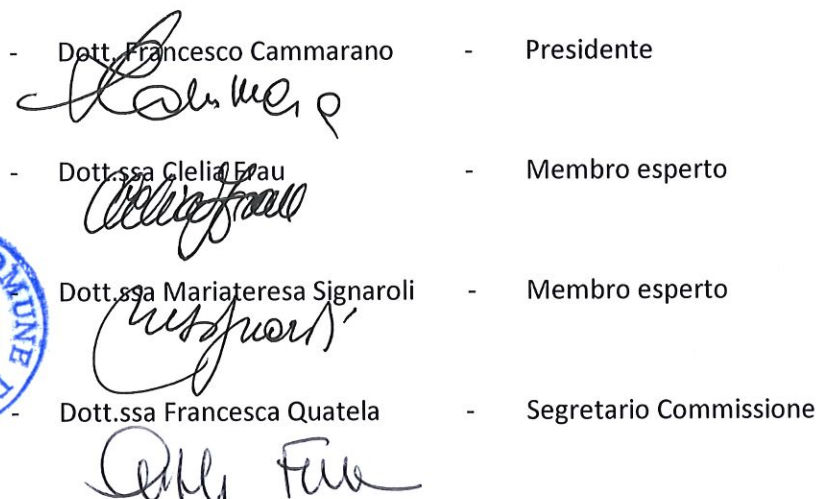 - Dott. Francesco Cammarano - Presidente
- Dott.ssa Clelia Frau - Membro esperto
Dott.ssa Mariateresa Signaroli - Membro esperto
COMUNE
- Dott.ssa Francesca Quatela - Segretario Commissione